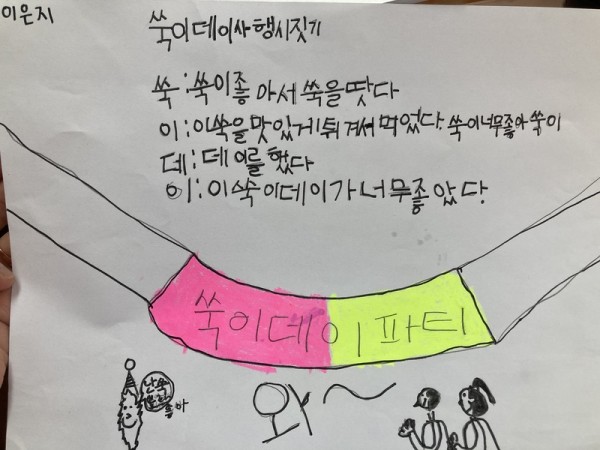 이은지
쑥이데이사행시짓기
쑥:쑥이좋아서쑥을땃다
이:이쑥을맛있게튀겨서먹었다.쑥이너무좋아쑥이
데:데이를했다
이:이쑥이데이가너무좋았다.
쑥이데이파티
난쑥
좋아
와~